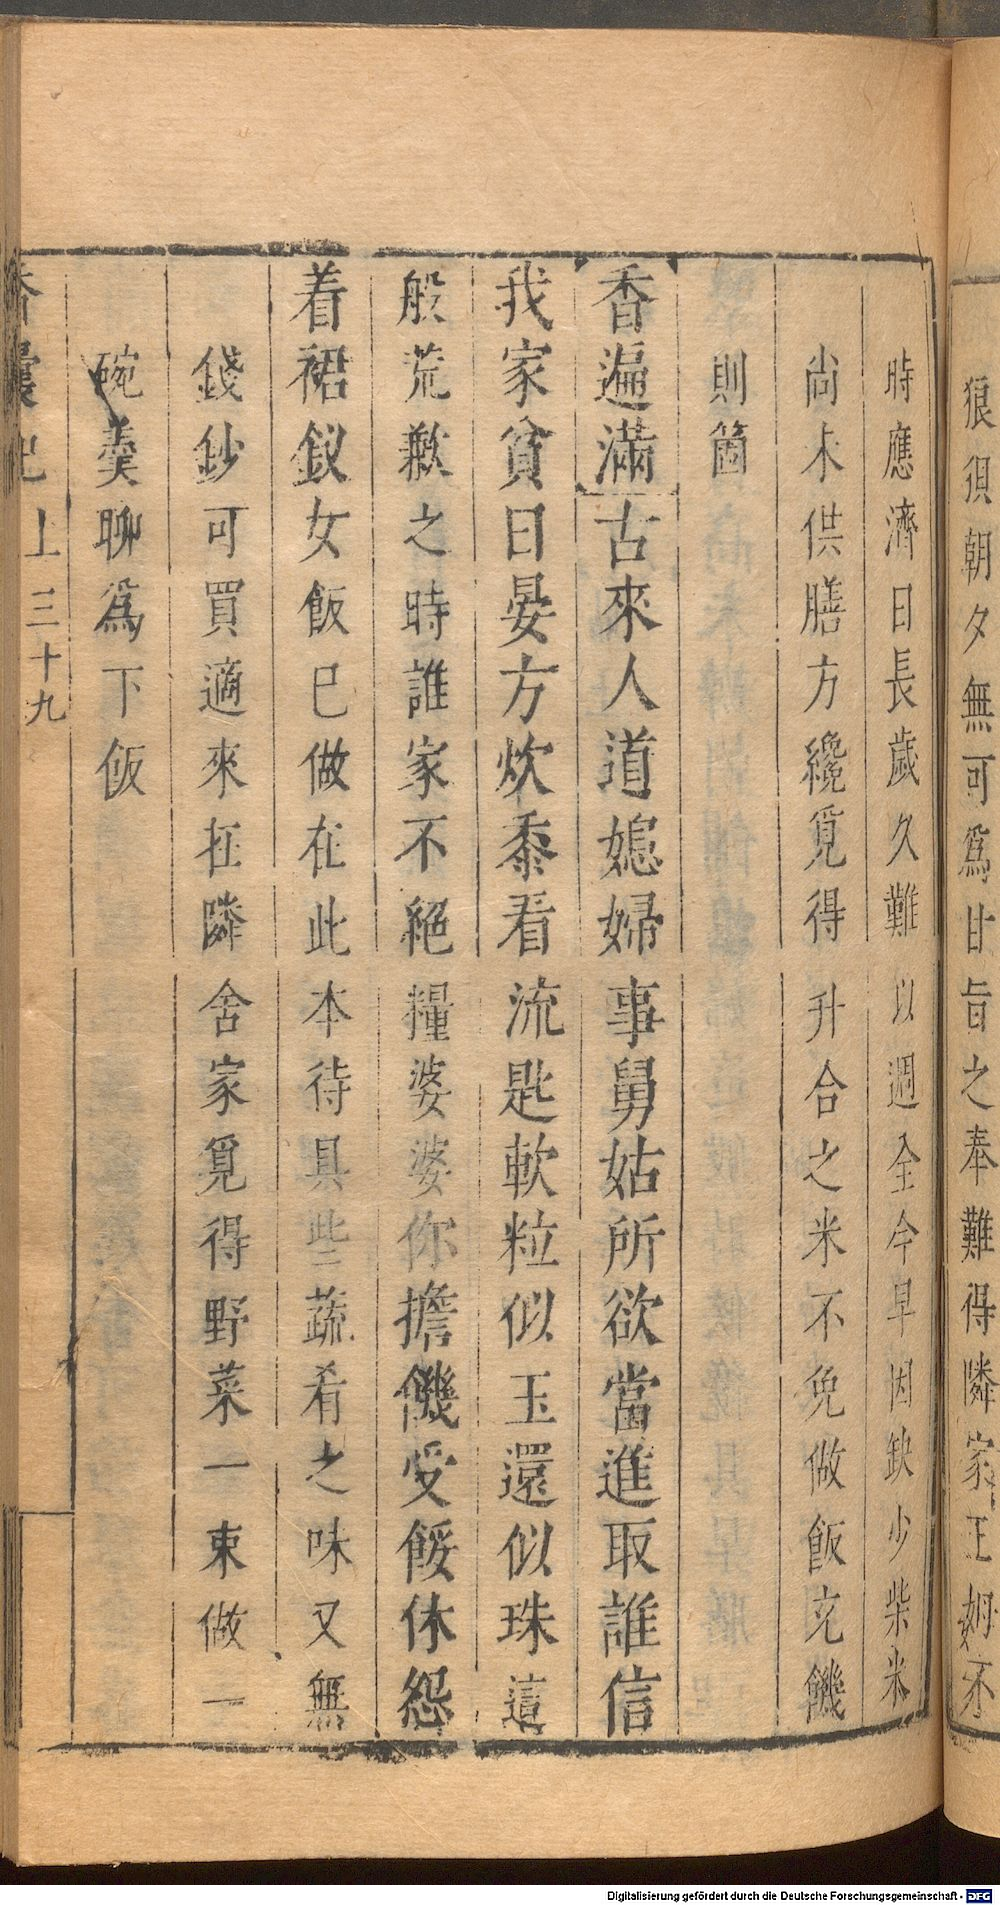 狽狽朝夕無可爲甘旨之奉難得隣家王姆不
時應濟日長歲久難以週全今早因缺少柴米
尚未供膳方纔覓得升合之米不免做飯充饑
則箇
香遍滿古來人道媳婦事舅姑所欲當進取誰信
我家貧日晏方炊黍看流匙軟粒似玉還似珠這
般荒歉之時誰家不絕糧婆婆你擔饑受餒休怨
着裙釵女飯已做在此本待具些蔬肴之味又無
錢鈔可買適來在隣舍家覓得野菜一束做一
碗羹聊爲下飯
香囊記上三十九
Digitalisierung gefördert durch die Deutsche Forschungsgemeinschaft - DFG